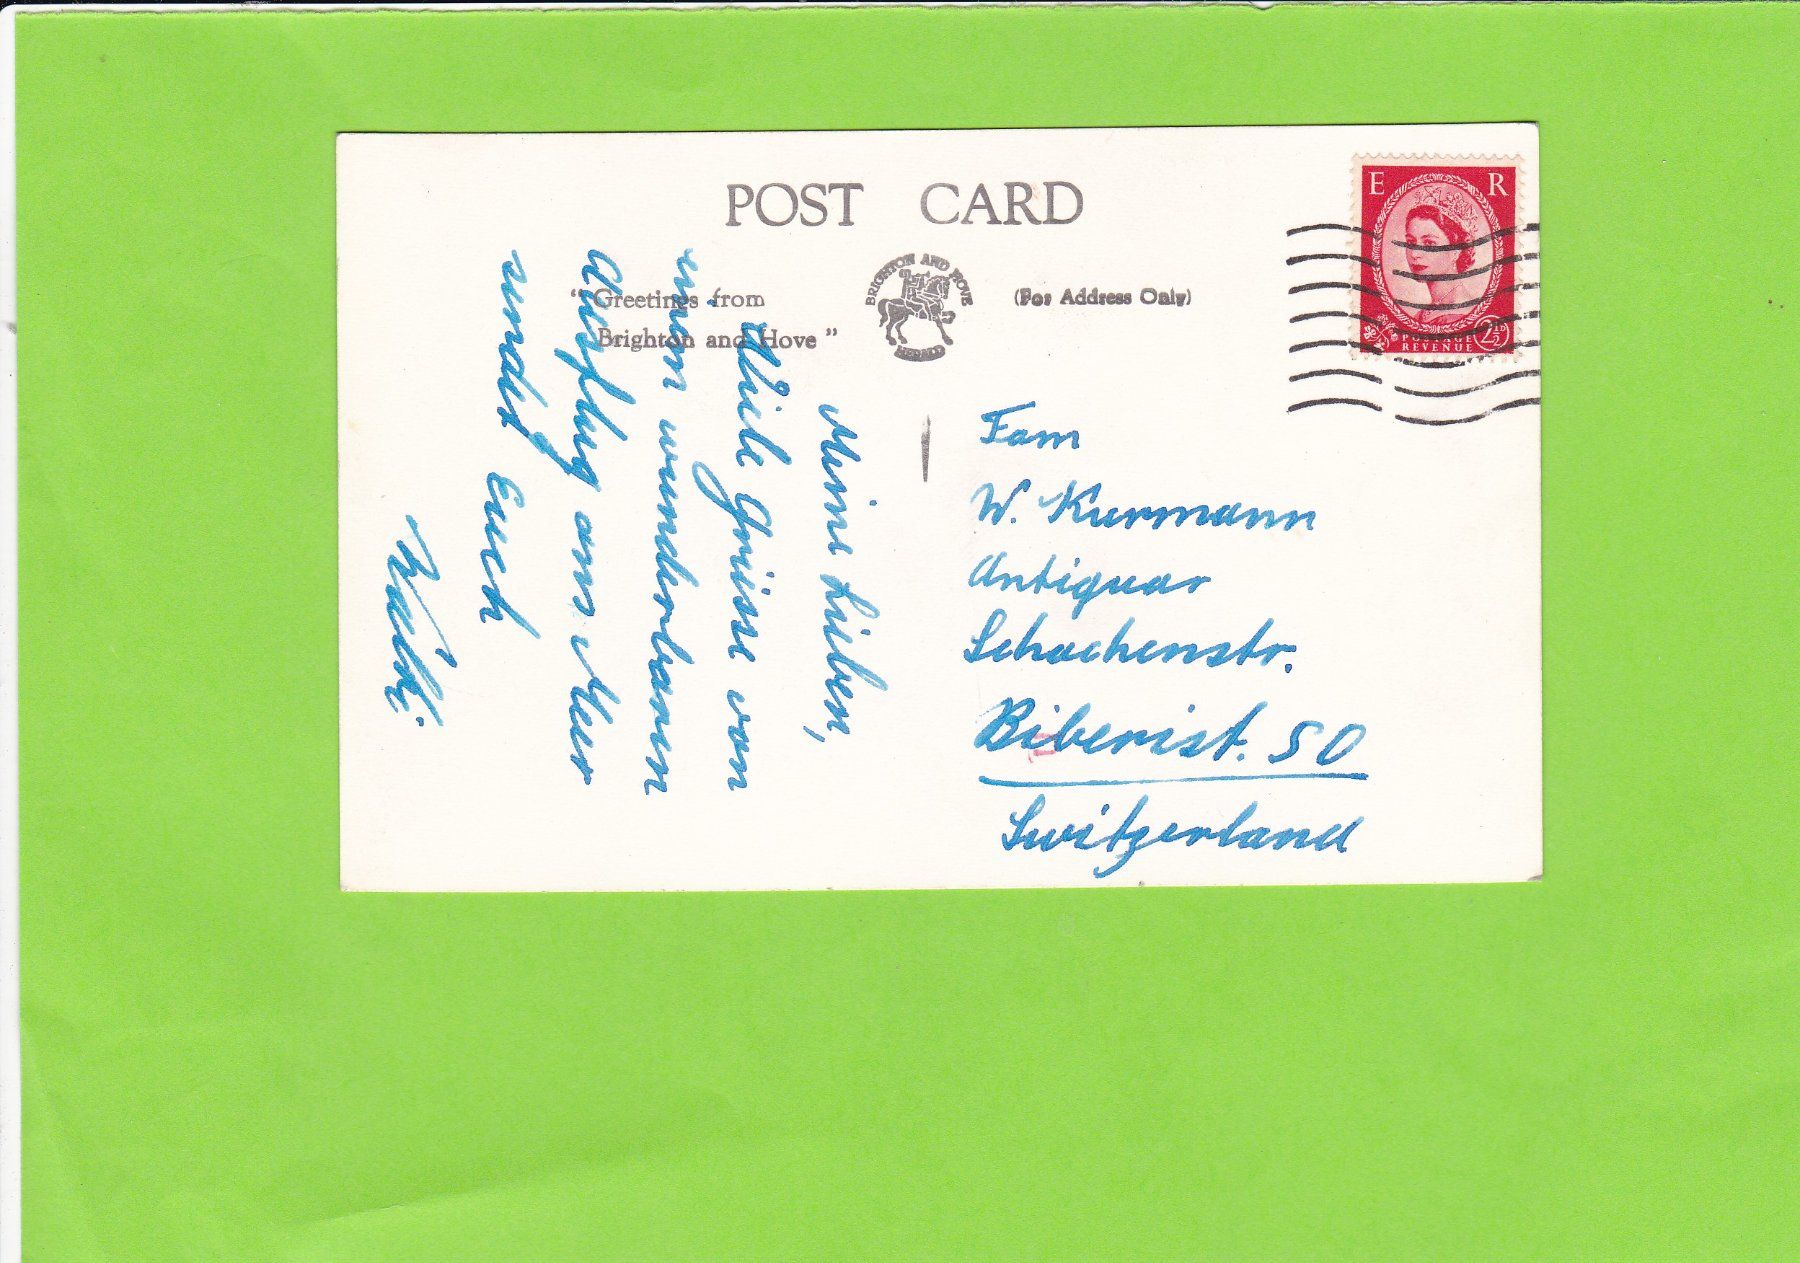 POST CARD
"Greetings from
Brighton and Hove"
BRIGHTON AND HOVE
HERALD
(For Address Only)
E R
POSTAGE
REVENUE
2½D
Meine Lieben,
Viele Grüsse von
einem wunderbaren
Ausflug ans Meer
sendet Euch
Fam
W. Kurmann
Antiquar
Schachenstr.
Biberist. SO
Switzerland